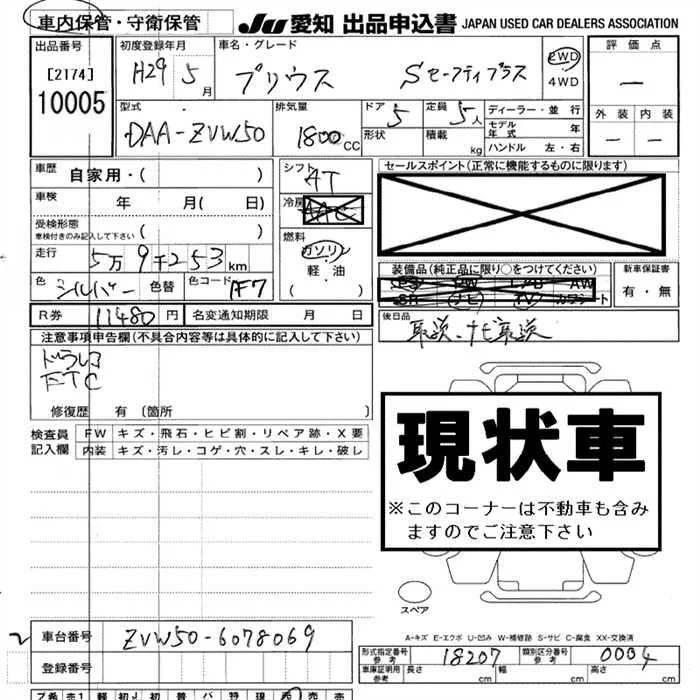 車内保管・守衛保管
JU 愛知 出品申込書 JAPAN USED CAR DEALERS ASSOCIATION
出品番号
[2174]
10005
初度登録年月
H29 5月
車名・グレード
プリウス Sセーフティプラス
2WD
4WD
評価点
ー
外装 内装
ー ー
型式
DAA-ZVW50
排気量
1800CC
ドア 5
形状
定員 5人
積載 kg
ディーラー・並行
モデル年式 年
ハンドル 左・右
車歴
自家用・( )
車検 年 月( 日)
受検形態
車検付きのみ記入して下さい ( )
走行 5万9千253km
色 シルバー 色替 色コード 1F7
シフト
AT
冷房
AAC
燃料
ガソリン
・
軽・油
セールスポイント(正常に機能するものに限ります)
装備品(純正品に限り○をつけてください)
PS PW AW
SR ナビ TV カワシート
新車保証書
有・無
R券 11480円 名変通知期限 月 日
後日品
取説、ナビ取説
注意事項申告欄(不具合内容等は具体的に記入して下さい)
ドラレコ
ETC
修復歴 有〔箇所 〕
検査員記入欄
FW キズ・飛石・ヒビ割・リペア跡・X要
内装 キズ・汚レ・コゲ・穴・スレ・キレ・破レ
現状車
※このコーナーは不動車も含み
ますのでご注意下さい
スペア
A-キズ E-エクボ U-凹み W-補修跡 S-サビ C-腐食 XX-交換済
2
車台番号 ZVW50-6078069
登録番号
形式指定番号 参考 18207 類別区分番号 参考 0004
車庫証明用 参考 長さ 幅 高さ